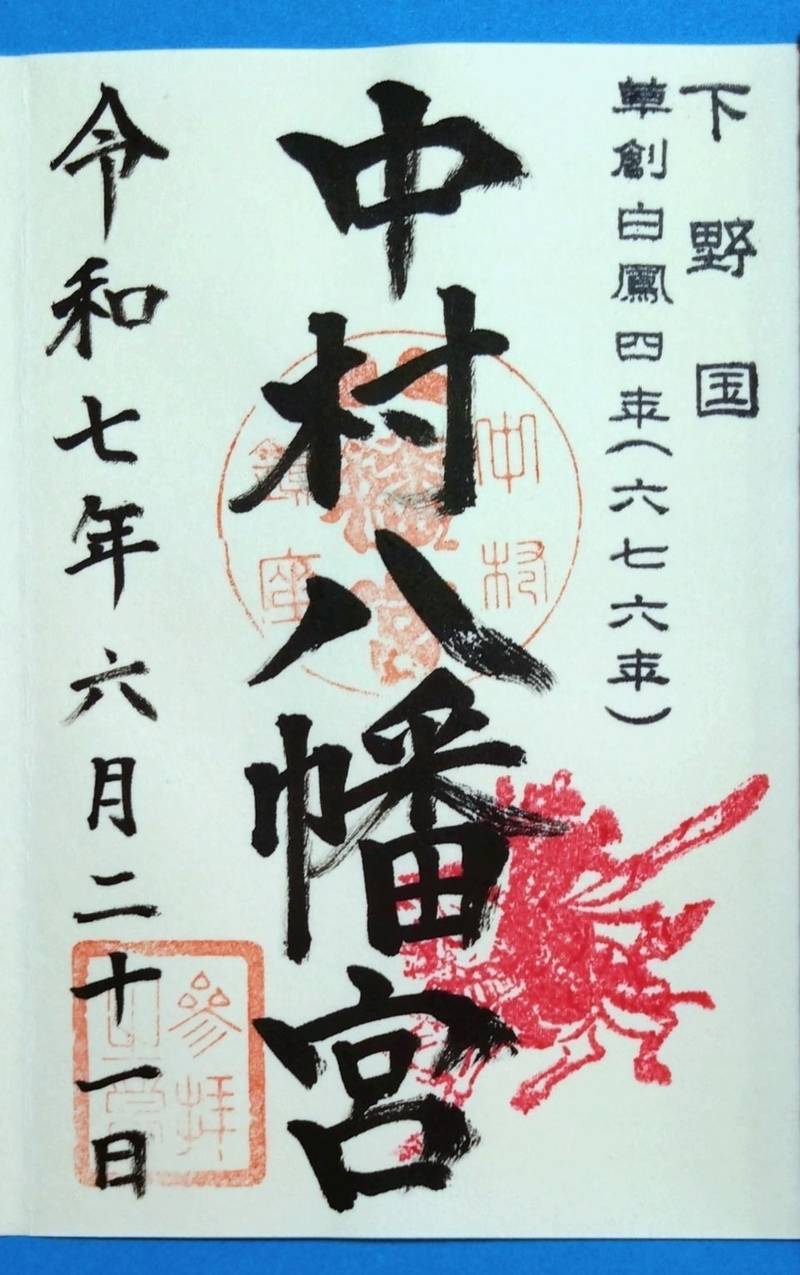 下野国
草創白鳳四年(六七六年)
中村八幡宮
中村
鎮座
令和七年六月二十一日
参拝